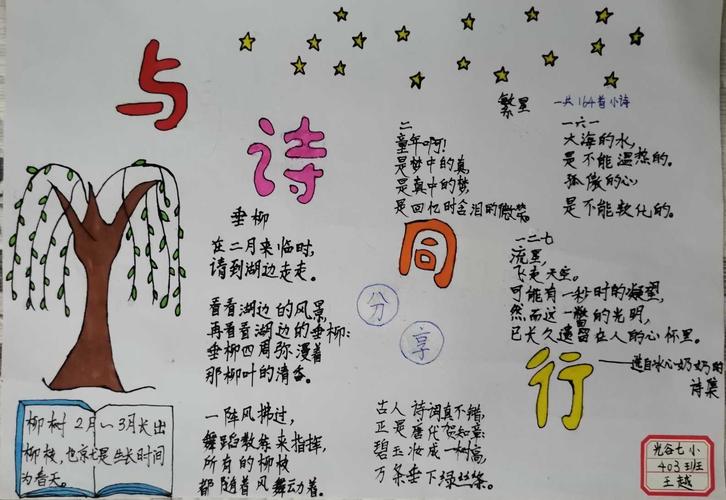 与
诗
同
行
分
享
垂柳
在二月来临时，
请到湖边走走。
看看湖边的风景，
再看看湖边的垂柳；
垂柳四周弥漫着
那柳叶的清香。
一阵风拂过，
舞蹈教练来指挥，
所有的柳枝
都随着风舞动着。
古人诗词真不错，
正是唐代贺知章：
碧玉妆成一树高，
万条垂下绿丝绦。
繁星 一共164首小诗
二
童年啊！
是梦中的真
是真中的梦
是回忆时含泪的微笑。
一六一
大海的水，
是不能温热的。
孤傲的心
是不能软化的。
一二七
流星，
飞走天空。
可能有一秒时的凝望，
然而这一瞥的光明，
已长久遗留在人的心怀里。
——选自冰心奶奶的
诗集
柳树2月～3月长出
柳枝，也就是生长时间
为春天。
光谷七小
403班
王越